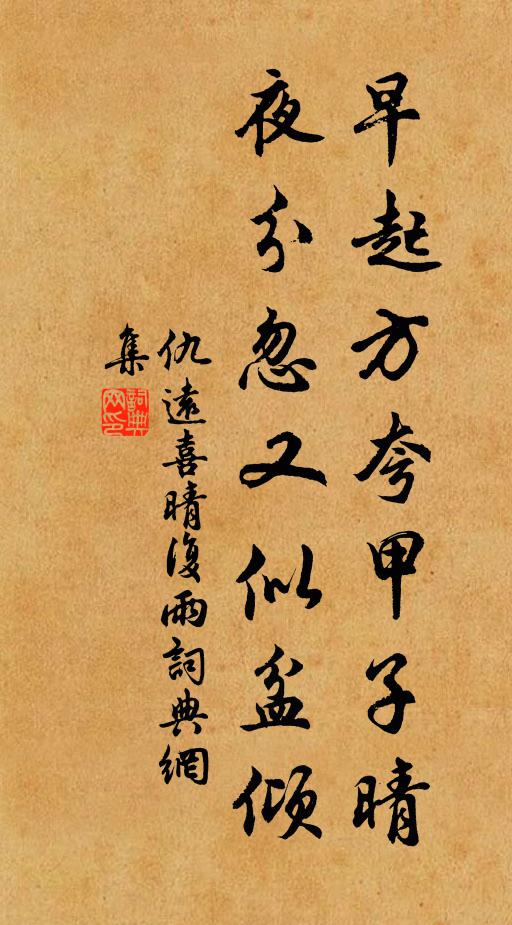 早起方夸甲子晴
夜分忽又似盆傾
仇遠喜晴復雨詞典網
集
詞典网印